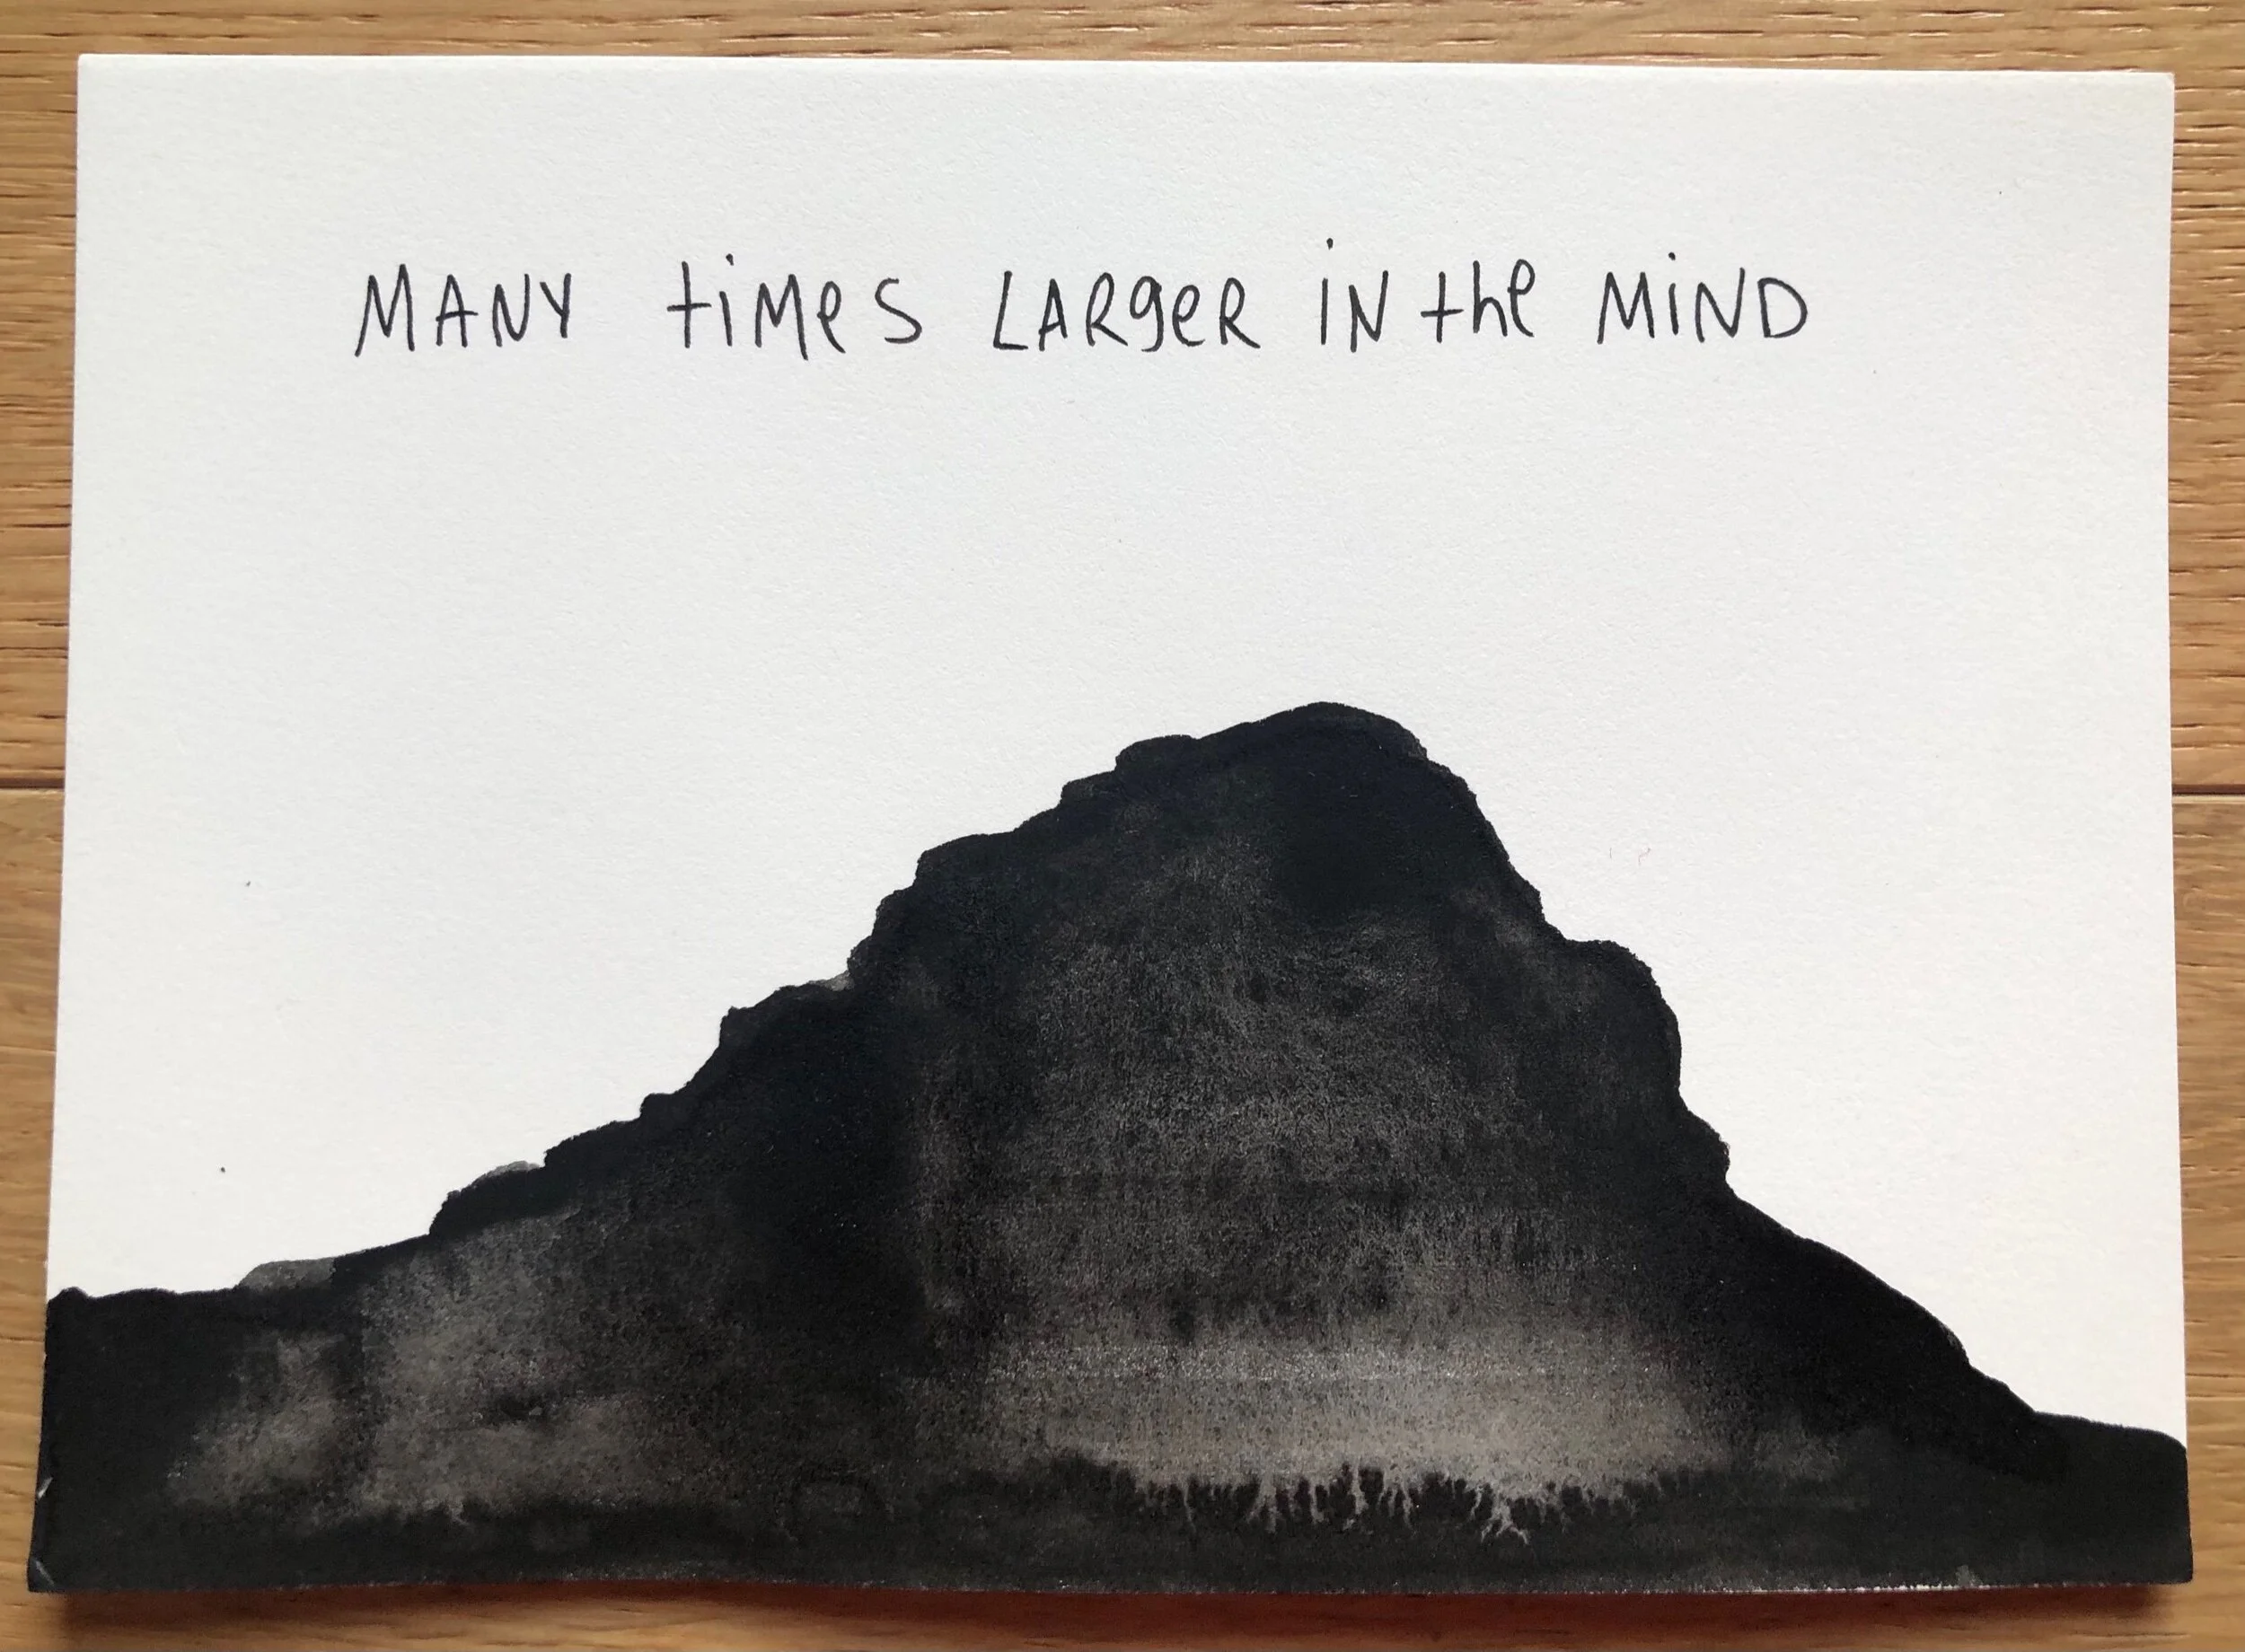 MANY tiMes LARgeR iN the MiND